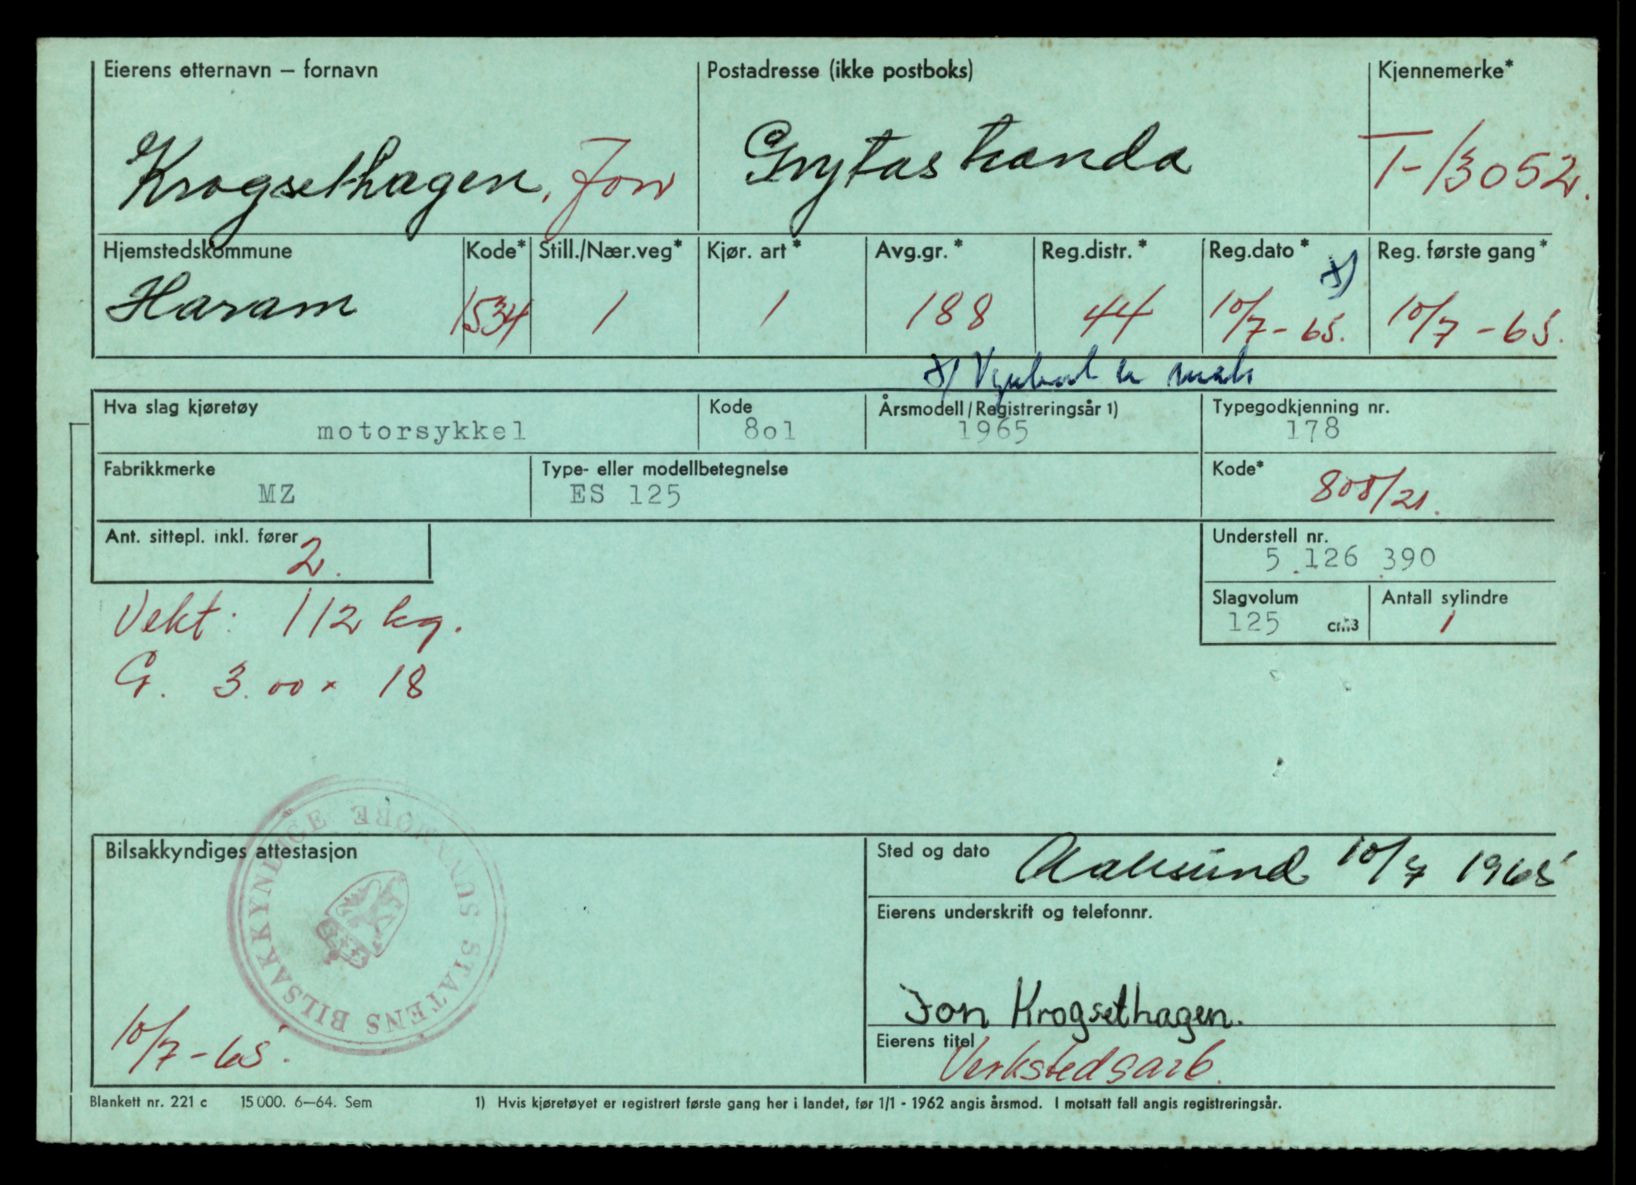 Eierens etternavn – fornavn Postadresse (ikke postboks) Kjennemerke*
Krogsethagen, Jon Grytastranda T-13052.
Hjemstedskommune Kode* Still./Nær.veg* Kjør. art* Avg.gr.* Reg.distr.* Reg.dato* x) Reg. første gang*
Haram 1534 1 1 188 44 10/7-65. 10/7-65.
x)
Hva slag kjøretøy Kode Årsmodell/Registreringsår 1) Typegodkjenning nr.
motorsykkel 8o1 1965 178
Fabrikkmerke Type- eller modellbetegnelse Kode*
MZ ES 125 800/21.
Ant. sittepl. inkl. fører Understell nr.
2. 5.126.390
Slagvolum Antall sylindre
125 cm3 1
Vekt: 112 kg.
G. 3.00 x 18
Bilsakkyndiges attestasjon Sted og dato Aalesund 10/7 1965
STATENS BILSAKKYNDIGE SUNNMØRE
Eierens underskrift og telefonnr.
Jon Krogsethagen.
10/7-65.
Eierens titel
Verkstedsarb.
Blankett nr. 221 c 15 000. 6–64. Sem 1) Hvis kjøretøyet er registrert første gang her i landet, før 1/1 - 1962 angis årsmod. I motsatt fall angis registreringsår.